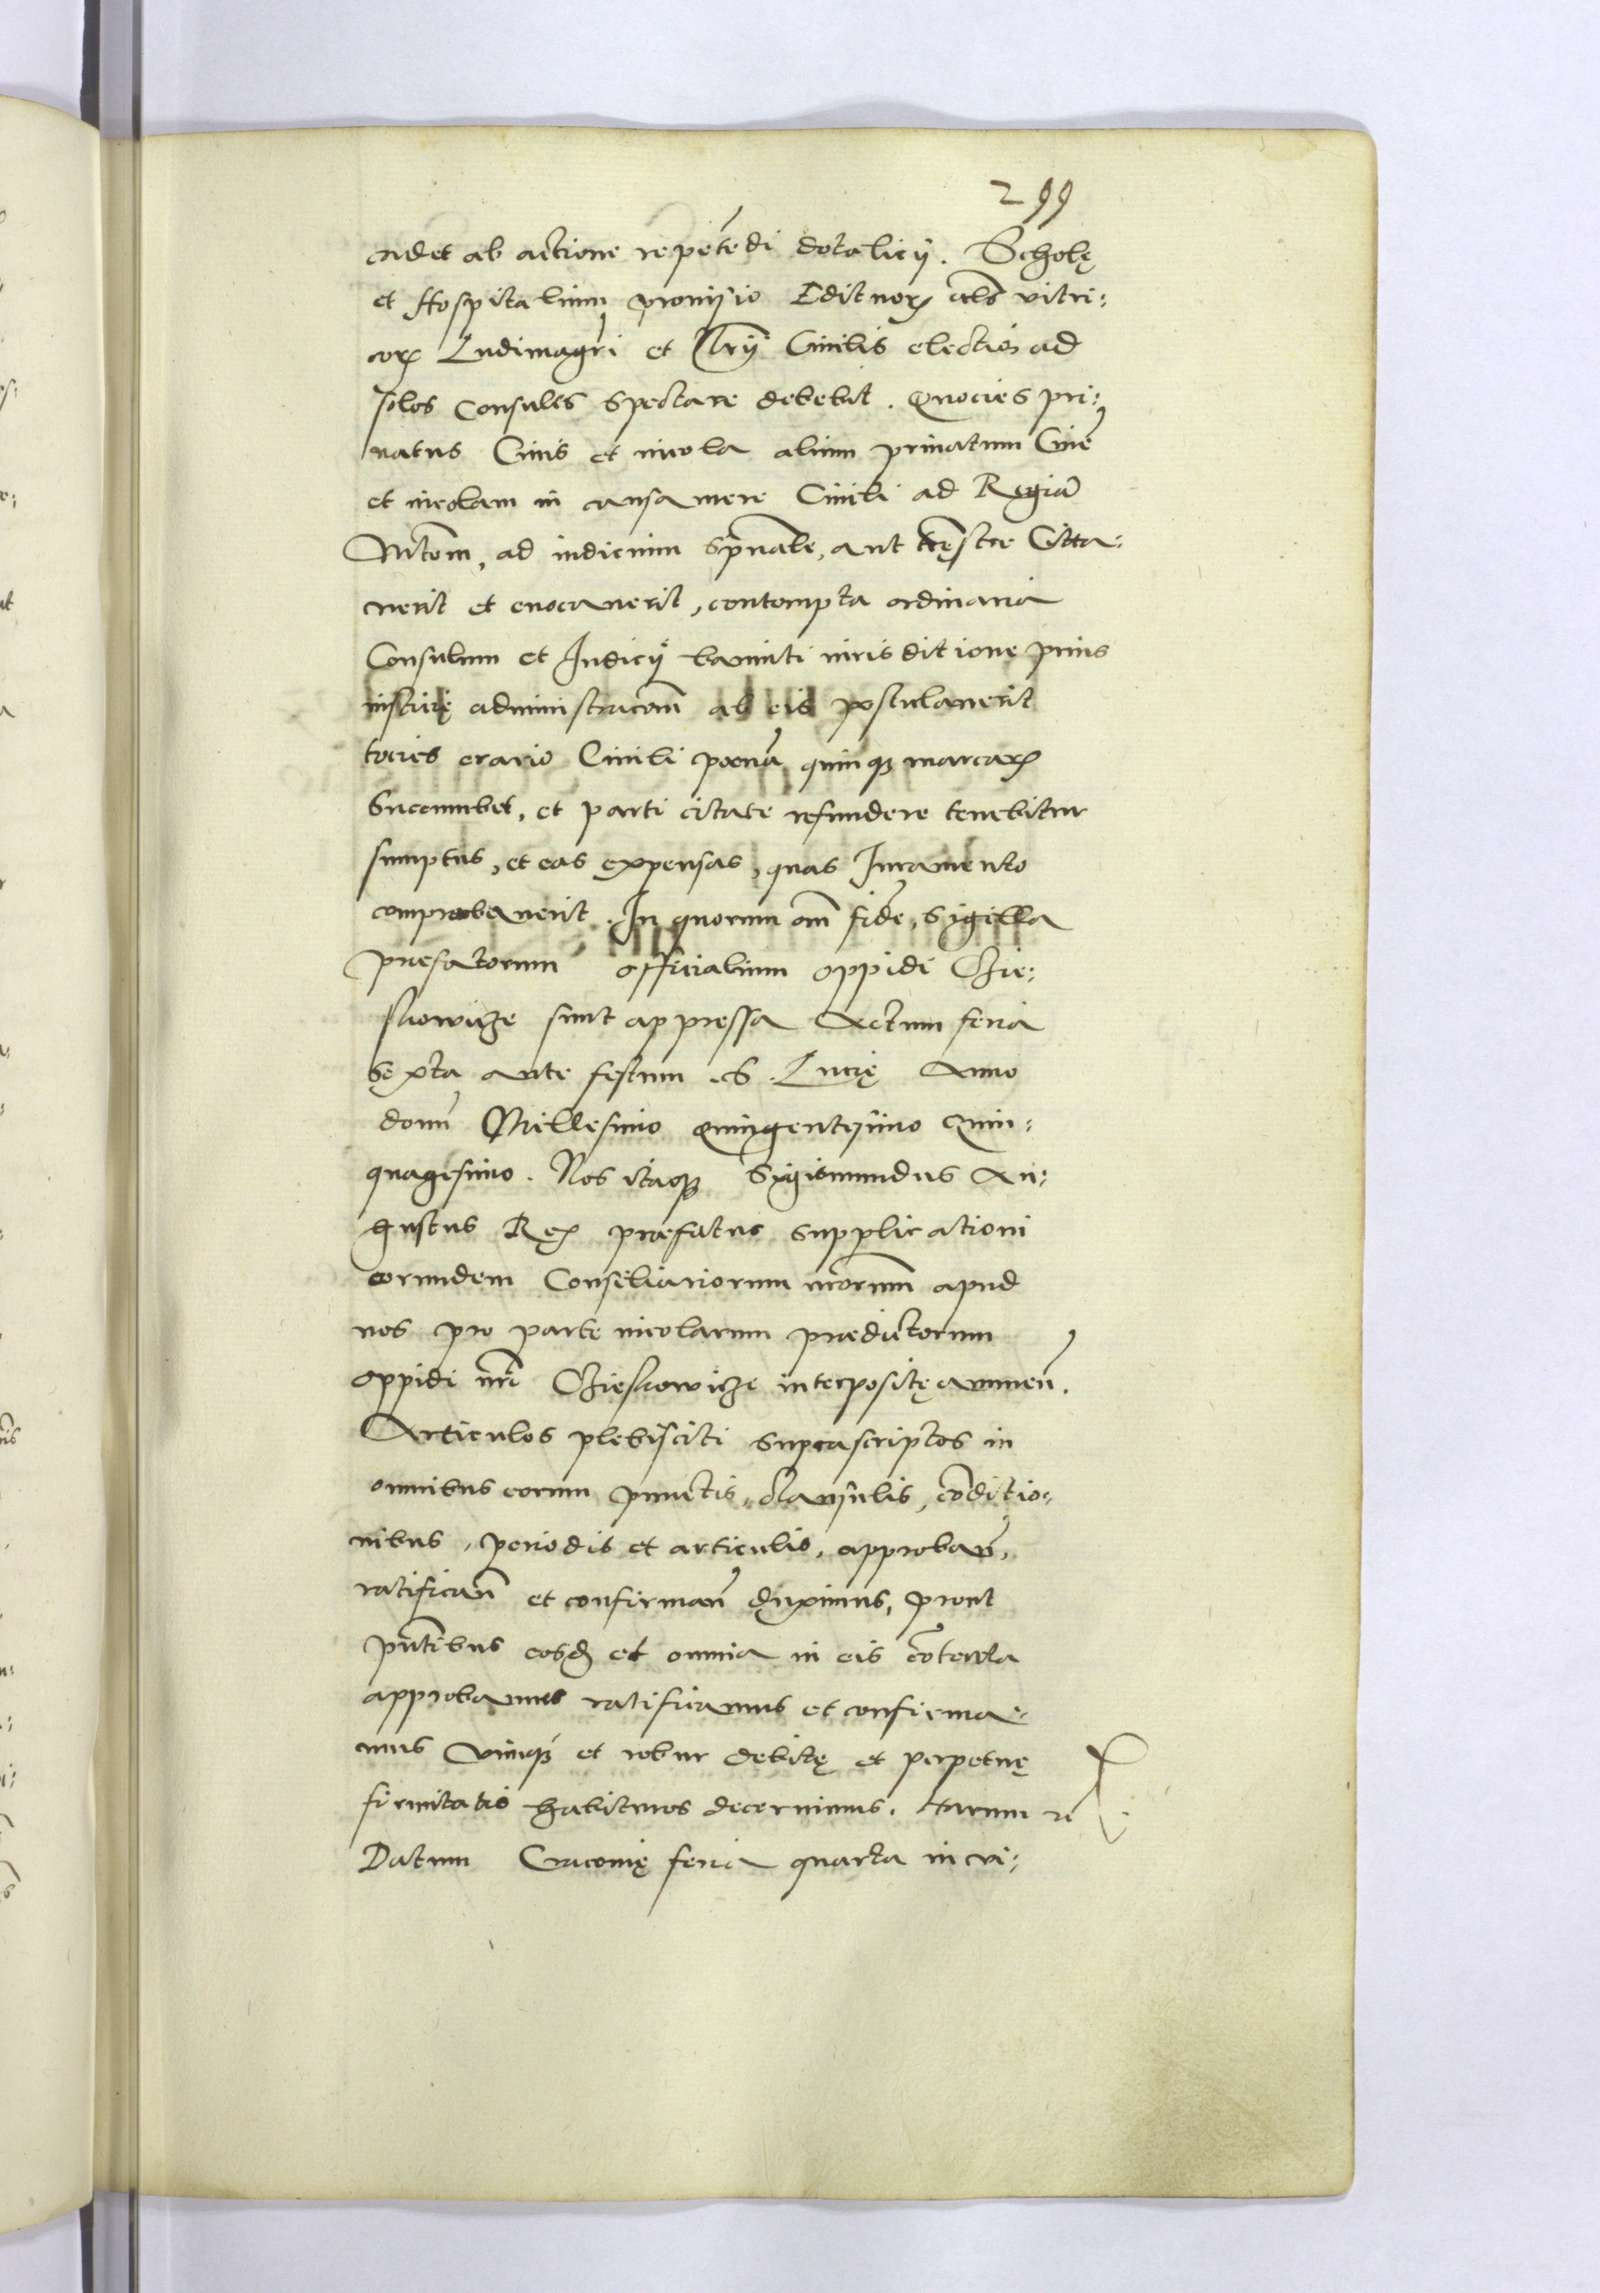 299
cadet ab actione repetẽdi dotalicij. Scholę
et Hospitalium provisio Edituorꝝ als vitri:
corꝝ Ludimagr̃i et Nrij Civilis electio ad
solos Consules spectare debebit. Quocies pri:
vatus Civis et incola alium privatum Civẽ
et incolam in causa mere Civili ad Regiã
Mtem, ad iudicium Sp̃uale, aut trẽstre Citta:
verit et evocaverit, contempta ordinaria
Consulum et Iudicij banniti iurisditione prius
iusticię administracom̃ ab eis postulaverit
tocies erario Civili poena quinqꝫ marcaꝝ
Succumbet, et parti citate refundere tenebitur
sumptus, et eas expensas, quas Iuramento
comprobaverit. In quorum om̃ fidẽ, Sigilla
praefatorum officialium oppidi Czie:
skowicze sunt appressa Actum feria
Sexta ante festum S. Lucię Anno
domĩ Millesimo Quingentesimo Quin:
quagesimo. Nos itaqꝫ Sigismundus Au:
gustus Rex praefatus supplicationi
eorundem Consiliariorum nrorum apud
nos pro parte incolarum praedictorum
oppidi nri Czieskowicze interpositę annueñ.
Articulos plebisciti supra scriptos in
omnibus eorum punctis, clausulis, cõditio:
nibus, periodis et articulis, approbañ,
ratificañ et confirmañ duximus, prout
pñtibus eosdẽ et omnia in eis cõtenta
approbamus ratificamus et confirma:
mus vimqꝫ et robur debitę et perpetuę
firmitatis habituros decernimus. Harum re
Datum Cracovię feria quarta in cri: